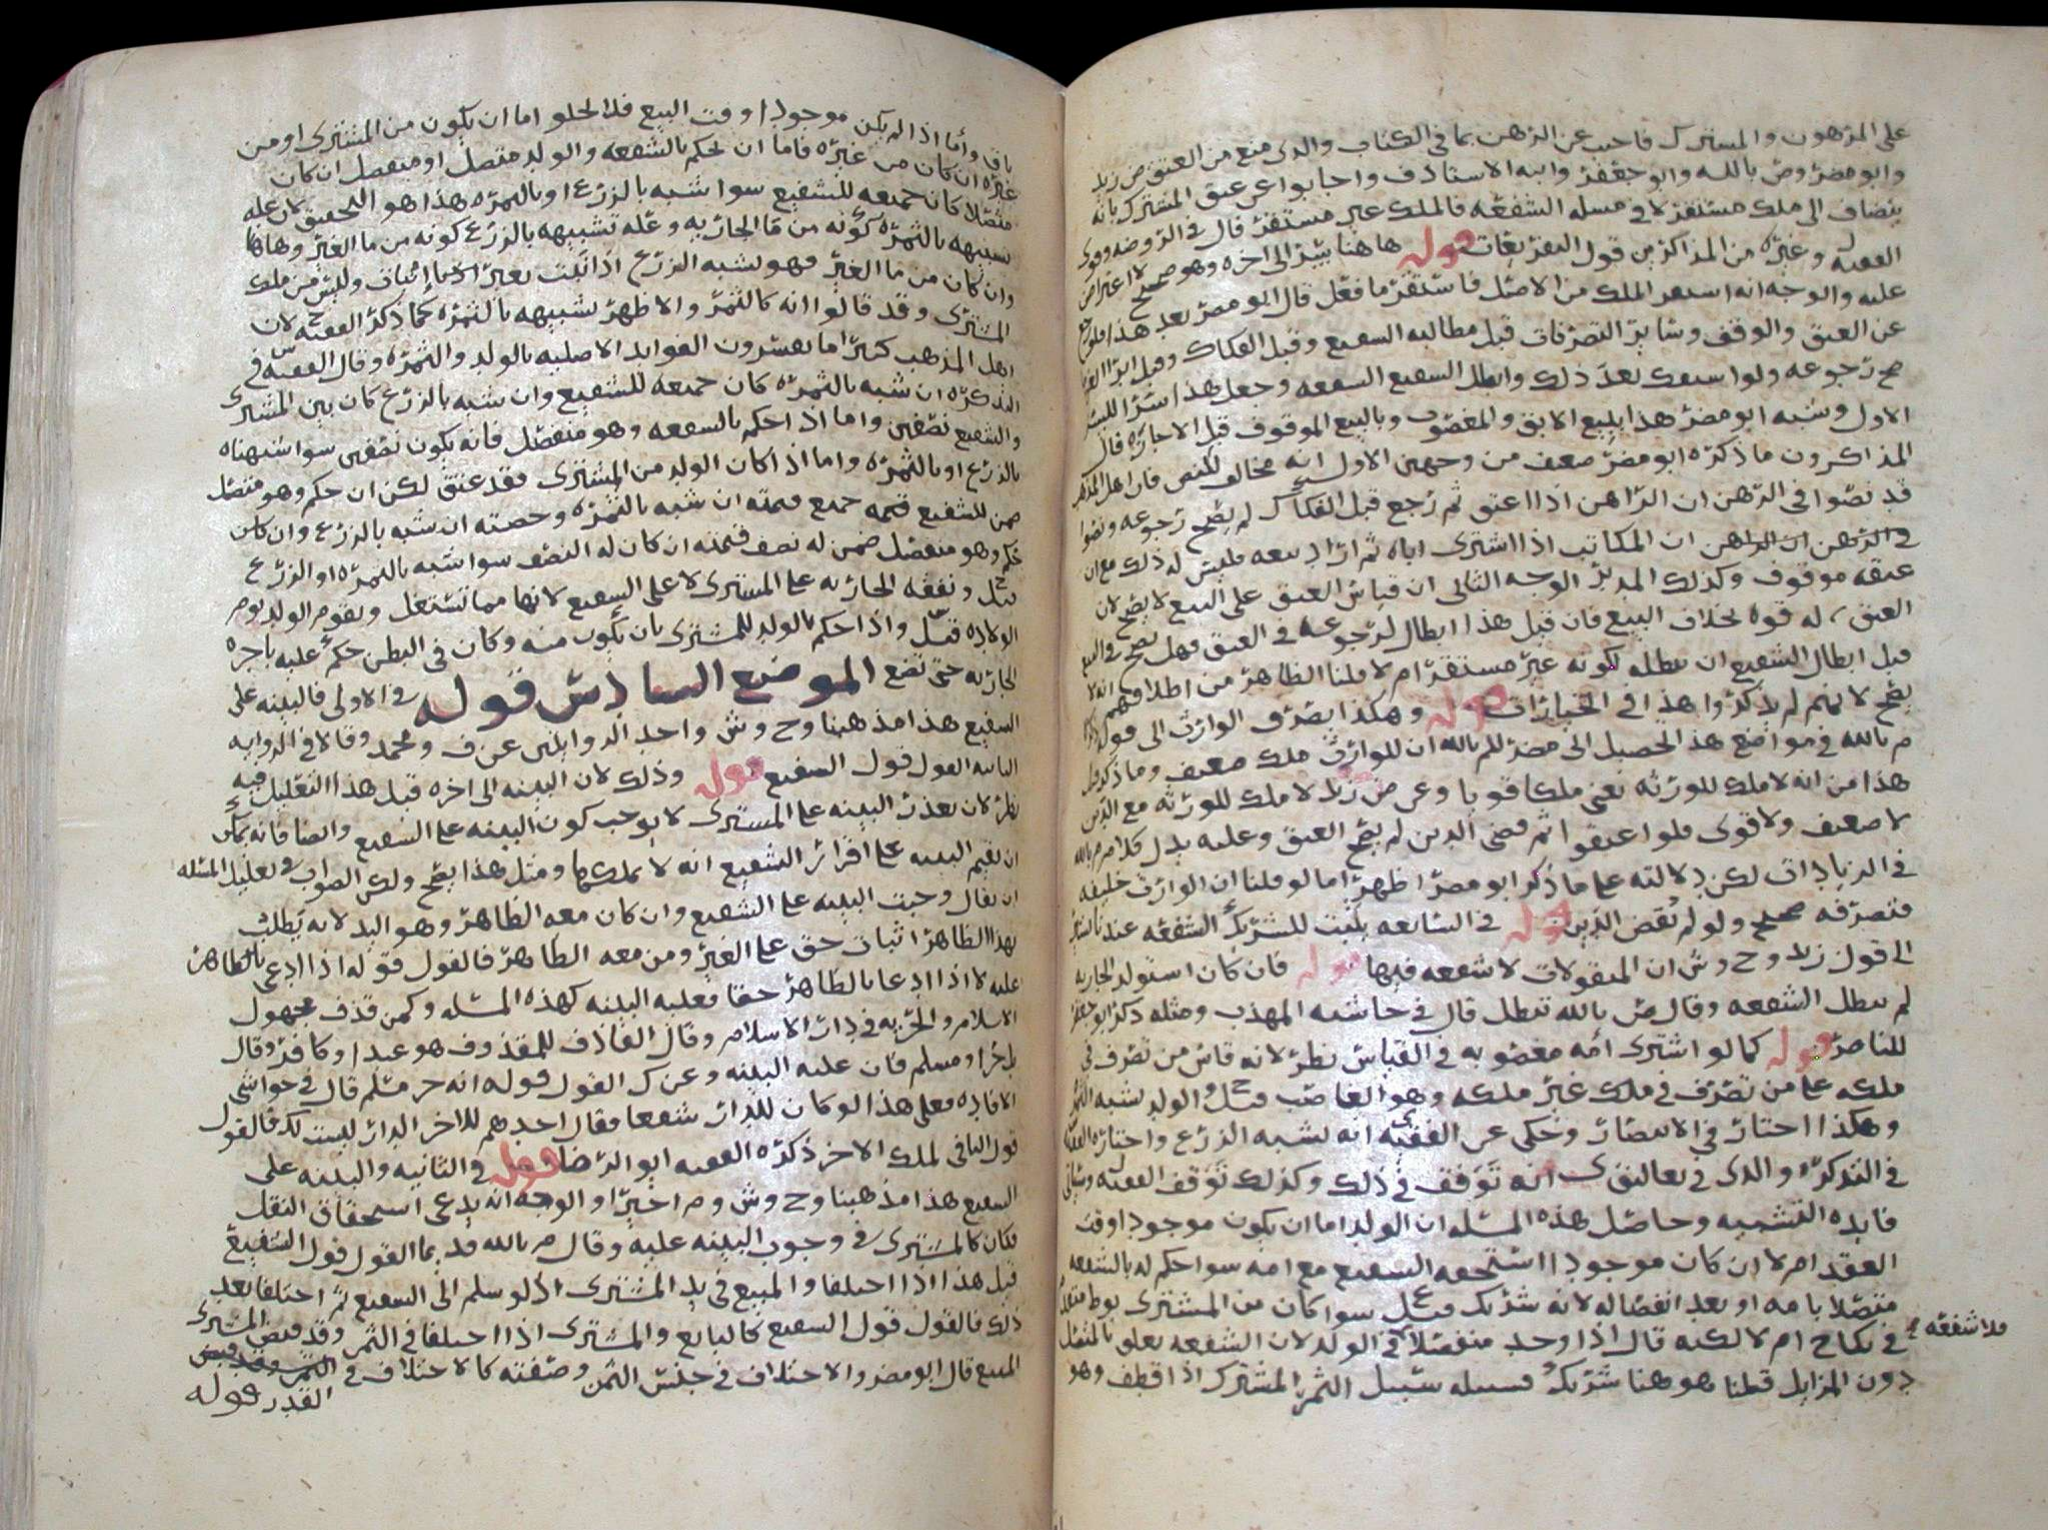 على المرهون والمشترك فاجيب عن الرهن بما في الكتاب والذي منع من العتق ض زيد
وابو مضر وص بالله وابو جعفر وابنه الاستاذ ف واجابوا عن عتق المشترك بانه
يضاف الى ملك مستقر لا في مسله الشفعه فالملك غير مستقر قال في الروضه وقوى
الفقيه وغيره من المذاكرين قول التفريعات قوله ها هنا الى اخره وهو صحيح لا اعتراض
عليه والوجه انه استند الملك من الاصل فاستقر ما فعل قال ابو مضر بعد هذا فلو رجع
عن العتق والوقف وسائر التصرفات قبل مطالبه الشفيع وقبل الفكاك وقبل ابرا
صح رجوعه ولو استفك بعد ذلك وابطل الشفيع الشفعه وجعل هذا
الاول وشبه ابو مضر هذا ببيع الابق والمغصوب وبالبيع الموقوف قبل الاجازه قال
المذاكرون ما ذكره ابو مضر ضعيف من وجهين الاول انه مخالف للنص فان اهل المذهب
قد نصوا في الرهن ان الراهن اذا اعتق ثم رجع قبل الفكاك لم يصح رجوعه ونصوا
ان المكاتب اذا اشترى اباه ثم اراد بيعه فليس له ذلك مع ان
عتقه موقوف وكذلك المدبر الوجه الثاني ان قياس العتق على البيع لا يصح لان
العتق له قوه بخلاف البيع فان قيل هذا ابطال لرجوعه في العتق فهل يصح في البيع
قبل ابطال الشفيع ان يبطله لكونه غير مستقر ام لا قلنا الظاهر من اطلاقهم انه لا
يصح لانهم لم يذكروا هذا في الخيارات قوله وهكذا تصرف الوارث الى قول
م بالله في مواضع هذا الحصيل ابي مضر للم بالله ان للوارث ملك ضعيف وما ذكره
هذا من انه لا ملك للورثه يعني ملكا قويا وعن ض زيد لا ملك للورثه مع الدين
لا ضعيف ولا قوى فلو اعتقوا ثم قضى الدين لم يصح العتق وعليه يدل كلام م بالله
في الزيادات لكن دلالته على ما ذكر ابو مضر اظهر اما لو قلنا ان الوارث خليفه
فتصرفه صحيح ولو لم يقض الدين قوله في السابعه يثبت للشريك الشفعه عندنا
الى قول زيد وح وش ان المنقولات لا شفعه فيها قوله فان كان استولد الجاريه
لم تبطل الشفعه وقال ص بالله تبطل قال في حاشيه المهذب ومثله ذكر ابو جعفر
للناصر قوله كما لو اشترى امه مغصوبه في القياس نظر لانه قاس من تصرف في
ملكه على من تصرف في ملك غير ملكه وهو الغاصب والولد يشبه الثمر
وهكذا اختار في الانتصار وحكى عن الفقيه انه يشبه الزرع واختاره
في التذكره والذي في تعاليق ى انه توقف في ذلك وكذلك توقف الفقيه
فايده التشبيه وحاصل هذه المسله ان الولد اما ان يكون موجودا وقت
العقد ام لا ان كان موجودا استحقه الشفيع مع امه سوا حكم له بالشفعه
متصلا بامه او بعد انفصاله لانه شريك سوا كان من المشترى بوط
في نكاح ام لا لكنه قال اذا وجد منفصلا في الولد لان الشفعه تعلق بالمتصل
دون المزايل قلنا هو هنا شريك فسبيله سبيل الثمر المشترك اذا قطف وهو
فلا شفعه
باق واما اذا لم يكن موجودا وقت البيع فلا يخلو اما ان يكون من المشترى او من
غيره ان كان من غيره فاما ان يحكم بالشفعه والولد متصل او منفصل ان كان
متصلا كان جميعه للشفيع سوا شبه بالزرع او بالثمره هذا هو التحقيق لان عله
تشبيهه بالثمره كونه من ما الجاريه وعله تشبيهه بالزرع كونه من ما الغير وهاهنا
وان كان من ما الغير فهو يشبه الزرع اذا نبت بغير انبات وليس من ملك
المشترى وقد قالوا انه كالثمر والاظهر تشبيهه بالثمره كما ذكر الفقيه ح لان
اهل المذهب كثيرا ما يفسرون الفوايد الاصليه بالولد والثمره وقال الفقيه س في
التذكره ان شبه بالثمره كان جميعه للشفيع وان شبه بالزرع كان بين المشترى
والشفيع نصفين واما اذا حكم بالشفعه وهو منفصل فانه يكون نصفين سوا شبهناه
بالزرع او بالثمره واما اذا كان الولد من المشترى فقد عتق لكن ان حكم وهو متصل
ضمن للشفيع قيمه جميع قيمته ان شبه بالثمره وحصته ان شبه بالزرع وان كان
حكم وهو منفصل ضمن له نصف قيمته ان كان له النصف سوا شبه بالثمره او الزرع
ونفقه الجاريه على المشترى لا على الشفيع لانها مما تستغل ويقوم الولد يوم
الولاده واذا حكم بالولد للمشترى بان يكون منه وكان في البطن حكم عليه باجره
الجاريه حتى تضع الموضع السادس قوله في الاولى فالبينه على
الشفيع هذا مذهبنا وح وش واحد الروايتين عن ف ومحمد وقالا في الروايه
الثانيه القول قول الشفيع قوله وذلك لان البينه الى اخره قيل هذا التعليل فيه
نظر لان تعذر البينه على المشترى لا يوجب كون البينه على الشفيع وايضا فانه يمكن
ان يقيم البينه على اقرار الشفيع انه لا يملكها ومثل هذا يصح ولكن الصواب في تعليل المسئله
ان يقال وجبت البينه على الشفيع وان كان معه الظاهر وهو اليد لانه يطلب
بهذا الظاهر اثبات حق على الغير ومن معه الظاهر فالقول قوله اذا ادعى بالظاهر
عليه لا اذا ادعا بالظاهر حقا فعليه البينه كهذه المسله وكمن قذف مجهول
الاسلام والحريه في دار الاسلام وقال القاذف للمقذوف هو عبد او كافر وقال
بل حر او مسلم فان عليه البينه وعن ك القول قوله انه حر مسلم قال في حواشي
الافاده فعلى هذا لو كان للدار شفعا فقال احدهم للاخر الدار ليست لك فالقول
قول الباقي لملك الاخر ذكره الفقيه ابو الرضا قوله في الثانيه والبينه على
الشفيع هذا مذهبنا وح وش وم اخيرا والوجه انه يدعى استحقاق النقل
فكان كالمشترى في وجوب البينه عليه وقال م بالله قديما القول قول الشفيع
قيل هذا اذا اختلفا والمبيع في يد المشترى اذ لو سلم الى الشفيع ثم اختلفا بعد
ذلك فالقول قول الشفيع كالبايع والمشترى اذا اختلفا في الثمن وقد قبض المشترى
المبيع قال ابو مضر والاختلاف في جنس الثمن وصفته كالاختلاف في
القدر قوله